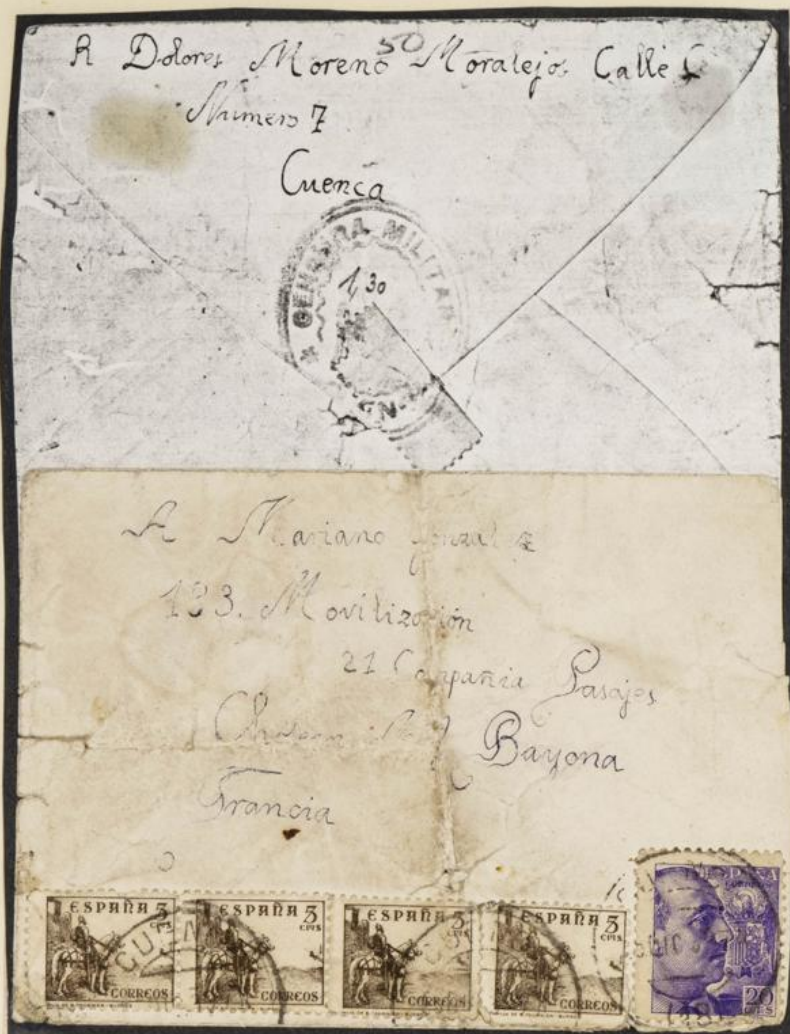 50
A Dolores Moreno Moralejos Calle
Numero 7
Cuenca
CENSURA MILITAR
1,30
A Mariano Gonzalez
183. Movilización
21 Compañia Pasajes
Bayona
Francia
ESPAÑA 5 CTS
CORREOS
ESPAÑA 5 CTS
CORREOS
ESPAÑA 5 CTS
CORREOS
ESPAÑA 5 CTS
CORREOS
CUENCA
20 CTS